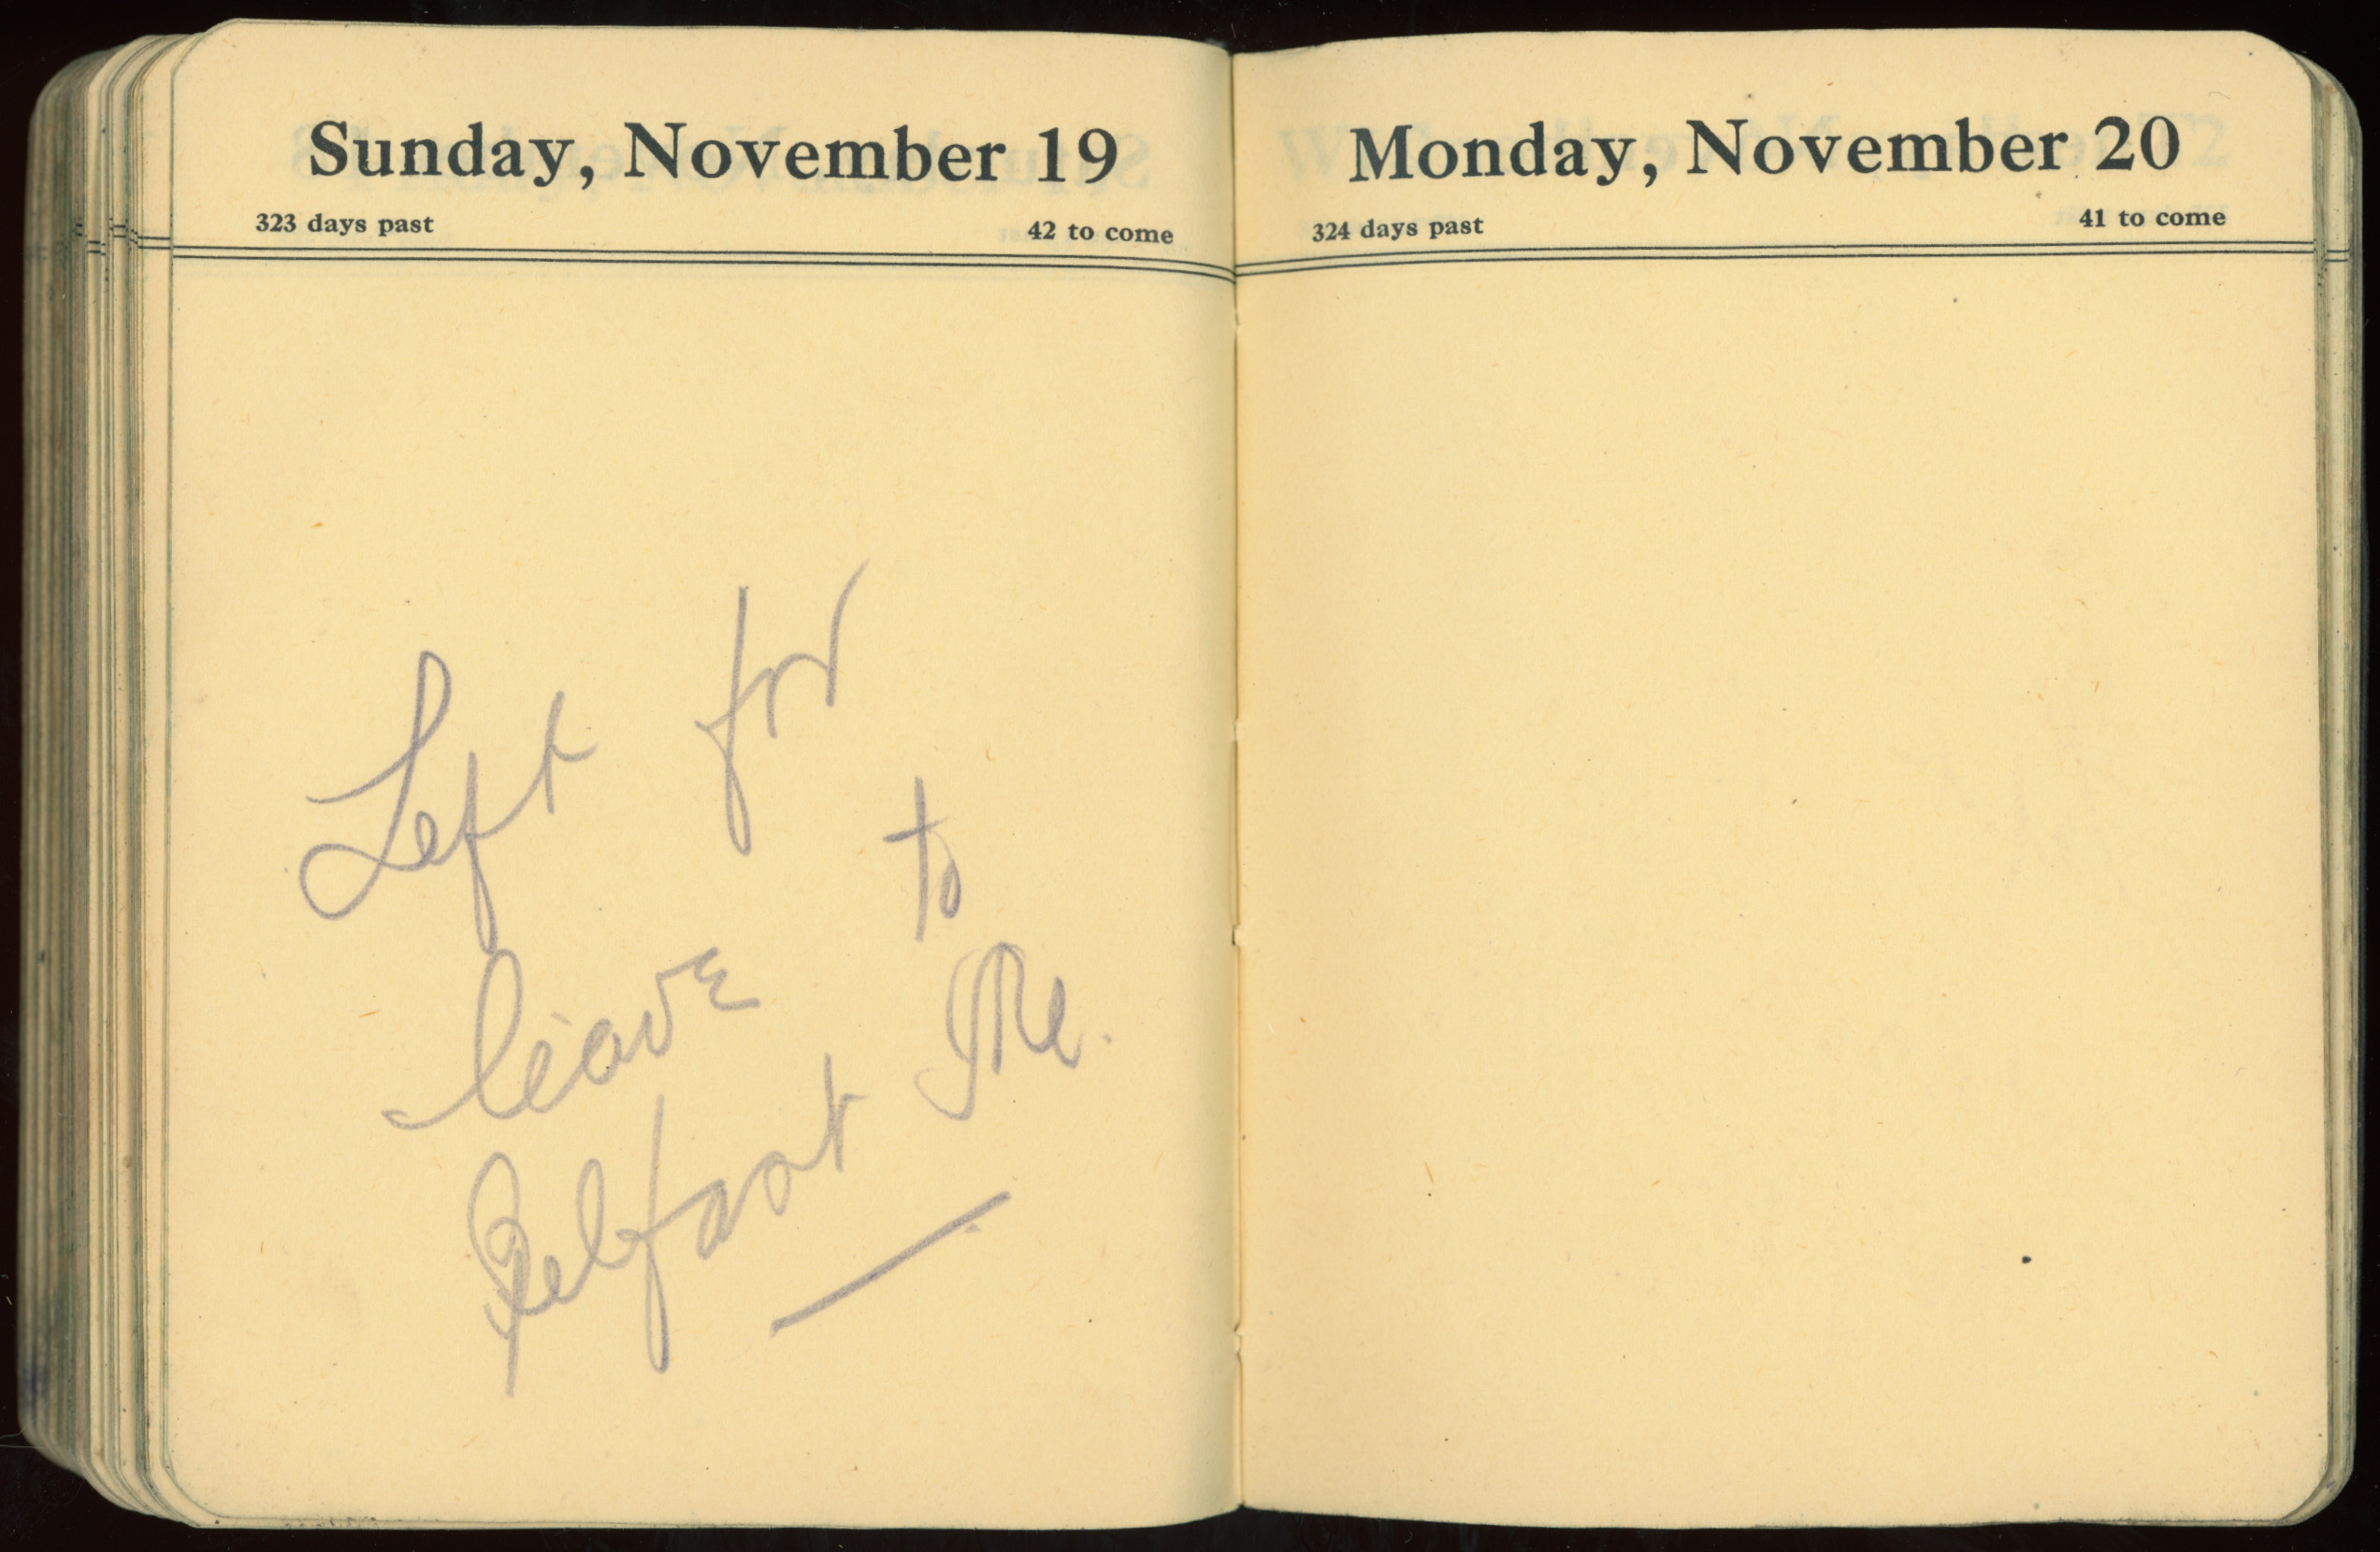 Sunday, November 19
323 days past 42 to come
Left for
leave to
Belfast Ire.
Monday, November 20
324 days past 41 to come